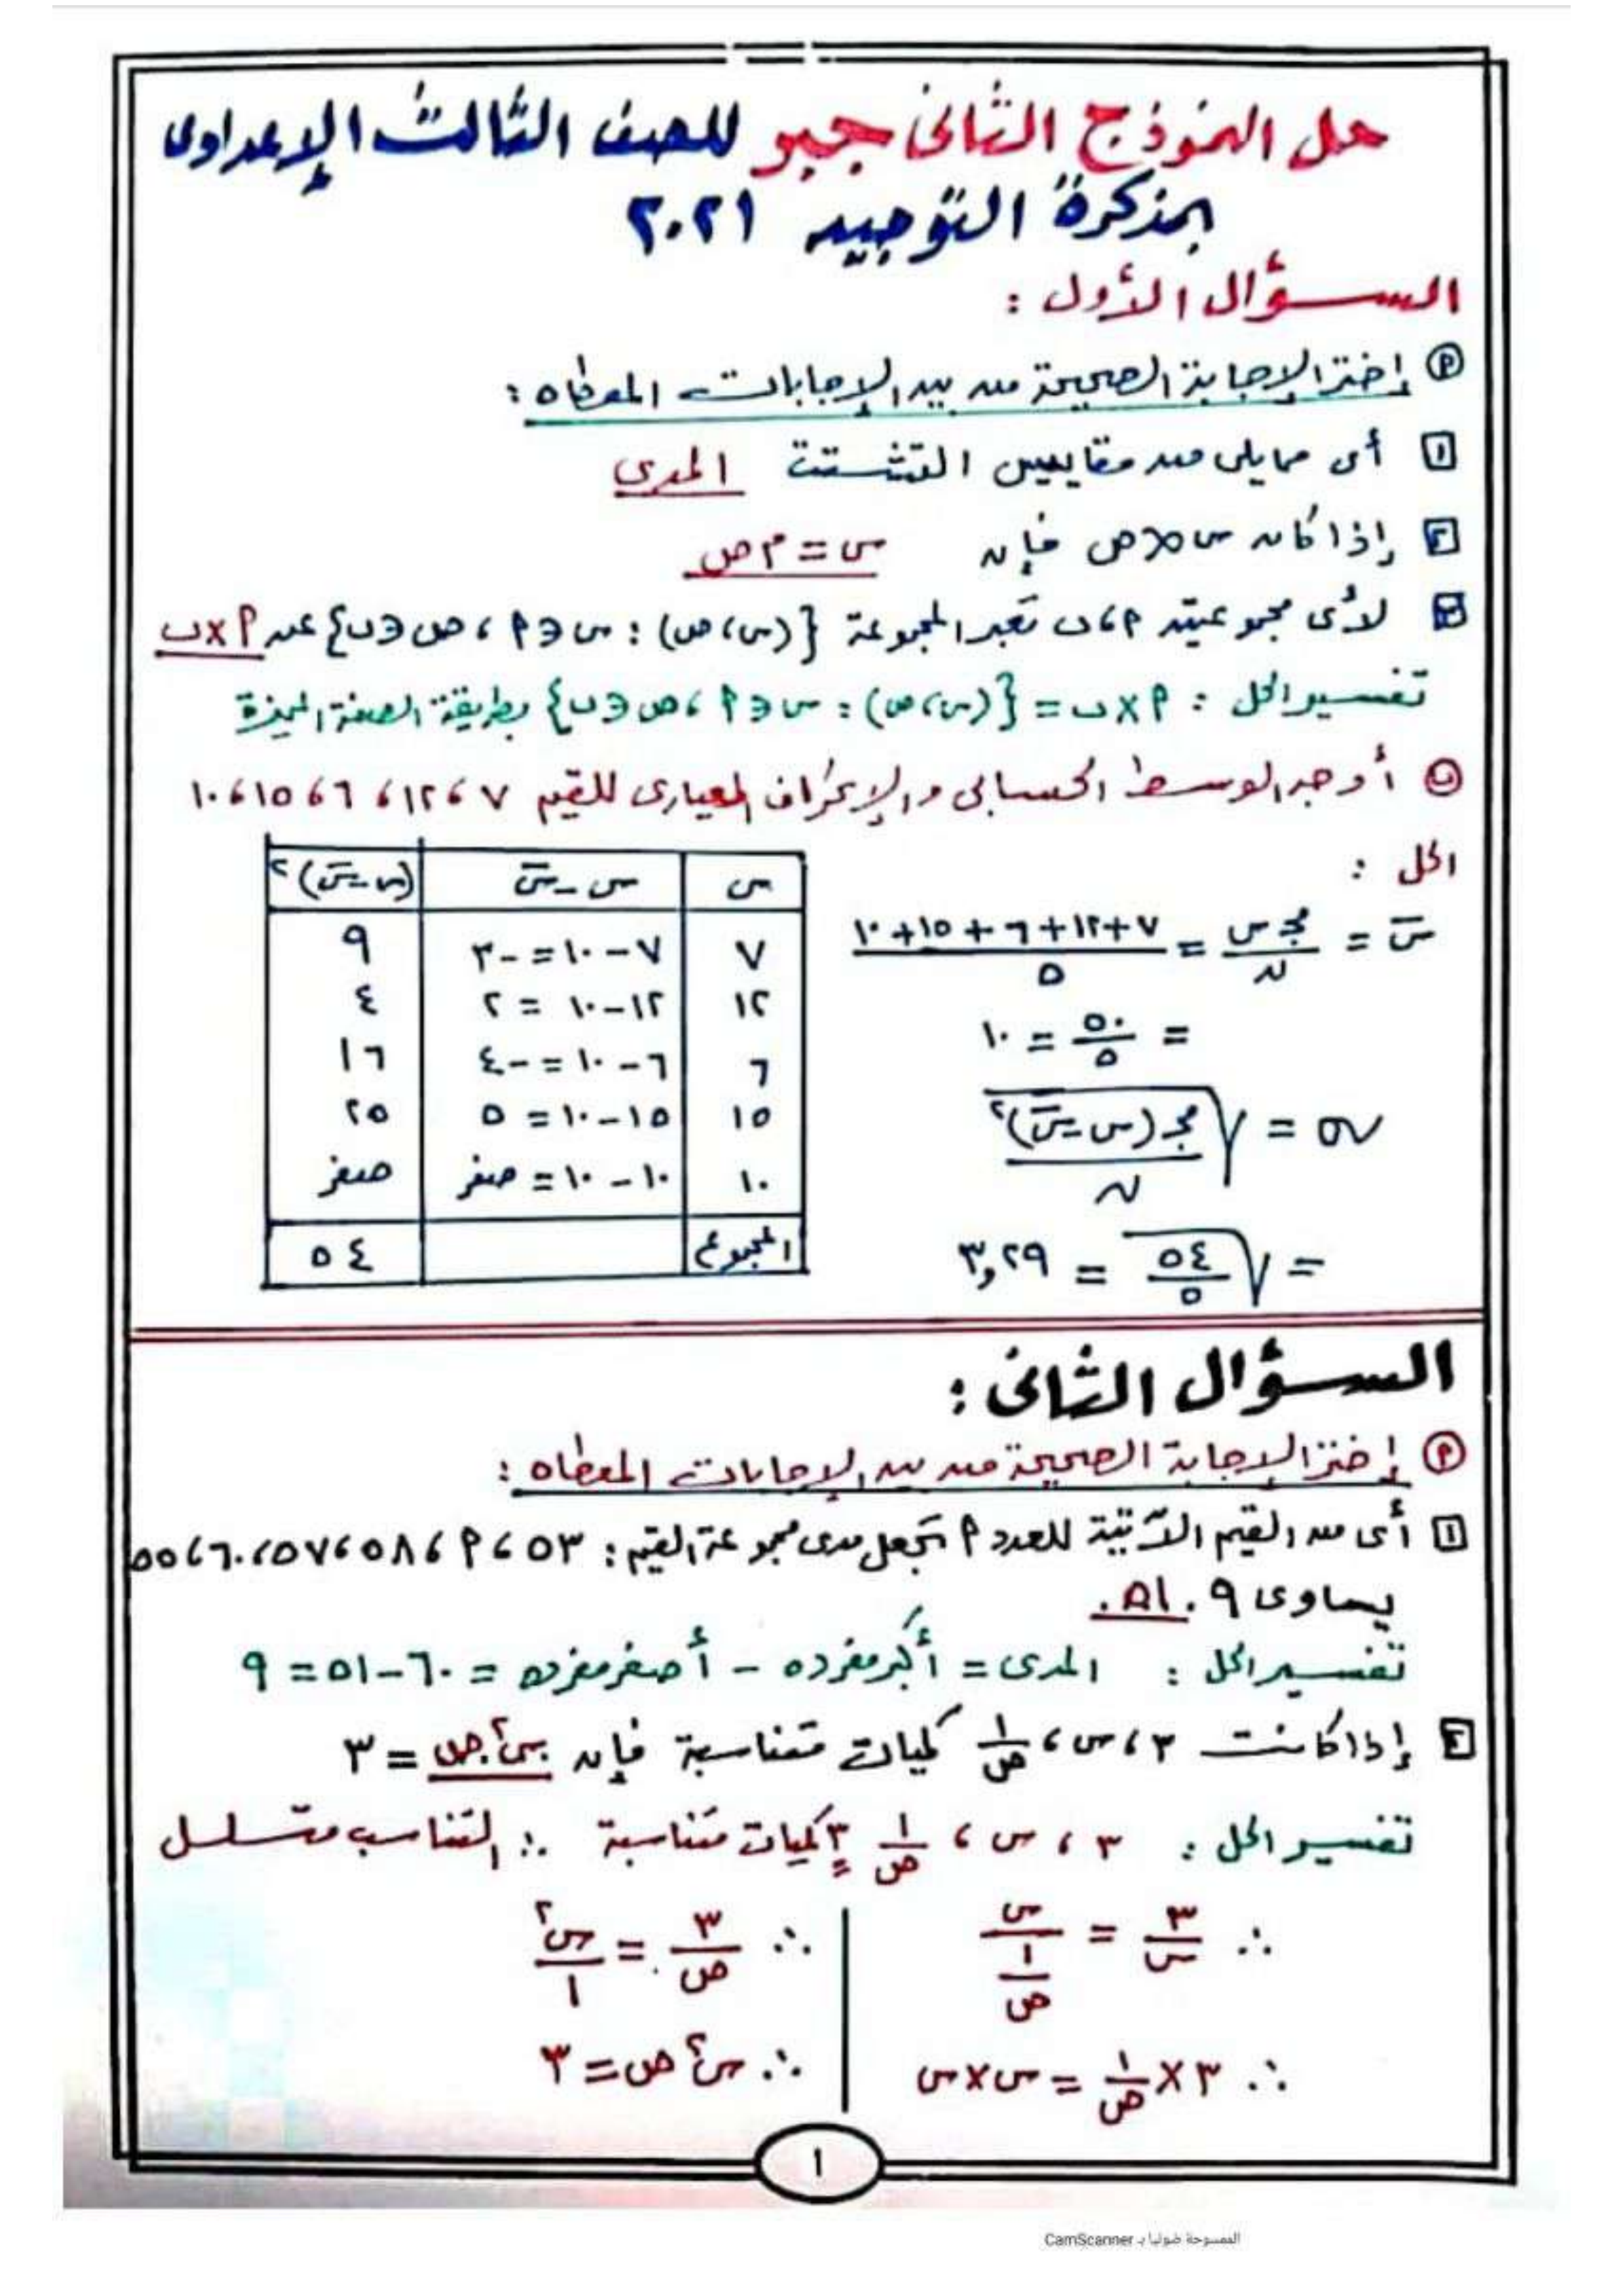 حل النموذج الثانى جبر للصف الثالث الإعدادى
بمذكرة التوجيه ٢٠٢١
السؤال الأول :
(أ) إختر الإجابة الصحيحة من بين الإجابات المعطاه :
١ أى مما يلى من مقاييس التشتت المدى
٢ إذا كان س ∝ ص فإن س = م ص
٣ لأى مجموعتين أ ، ب تعبر المجموعة {(س، ص) : س ∈ أ ، ص ∈ ب} عن أ × ب
تفسير الحل : أ × ب = {(س، ص) : س ∈ أ ، ص ∈ ب} بطريقة الصفة المميزة
(ب) أوجد الوسط الحسابى والإنحراف المعيارى للقيم ٧ ، ١٢ ، ٦ ، ١٥ ، ١٠
الحل :
س̄ = مجـ س / ن = (٧ + ١٢ + ٦ + ١٥ + ١٠) / ٥
= ٥٠ / ٥ = ١٠
σ = √(مجـ (س - س̄)² / ن)
= √(٥٤ / ٥) = ٣,٢٩
س | س - س̄ | (س - س̄)²
٧ | ٧ - ١٠ = -٣ | ٩
١٢ | ١٢ - ١٠ = ٢ | ٤
٦ | ٦ - ١٠ = -٤ | ١٦
١٥ | ١٥ - ١٠ = ٥ | ٢٥
١٠ | ١٠ - ١٠ = صفر | صفر
المجموع | | ٥٤
السؤال الثانى :
(أ) إختر الإجابة الصحيحة من بين الإجابات المعطاه :
١ أى من القيم الآتية للعدد أ تجعل مدى مجموعة القيم : ٥٣ ، أ ، ٥٨ ، ٥٧ ، ٦٠ ، ٥٥
يساوى ٩ . ٥١ .
تفسير الحل : المدى = أكبر مفرده - أصغر مفرده = ٦٠ - ٥١ = ٩
٢ إذا كانت ٣ ، س ، ١/ص كميات متناسبة فإن س² ص = ٣
تفسير الحل : ٣ ، س ، ١/ص كميات متناسبة ∴ التناسب متسلسل
∴ ٣/س = س / (١/ص)
∴ ٣ × ١/ص = س × س
∴ ٣/ص = س²/١
∴ س² ص = ٣
١
الممسوحة ضوئيا بـ CamScanner